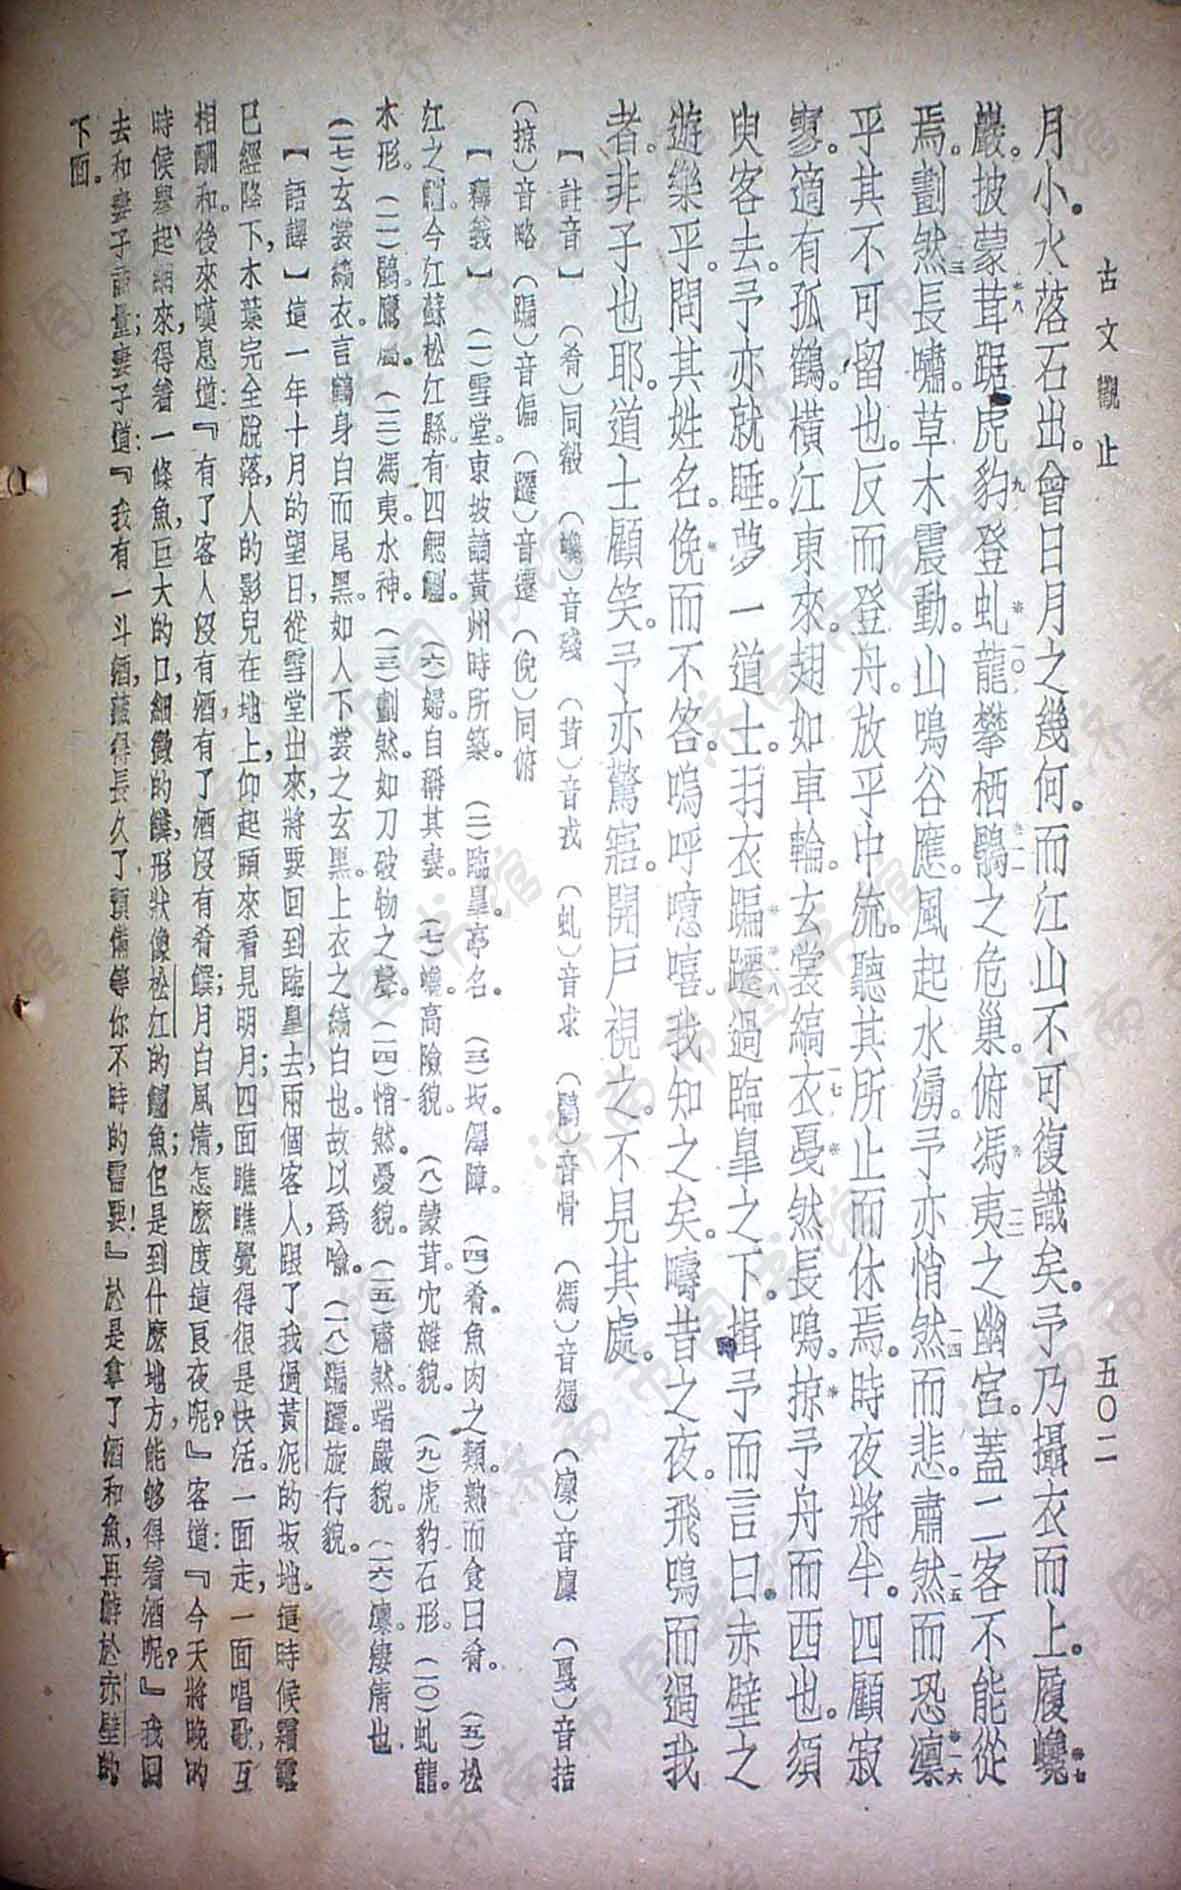 古文觀止
五〇二
月小。水落石出。曾日月之幾何。而江山不可復識矣。予乃攝衣而上。履巉
巖。披蒙茸。踞虎豹。登虬龍。攀栖鶻之危巢。俯馮夷之幽宮。蓋二客不能從
焉。劃然長嘯。草木震動。山鳴谷應。風起水湧。予亦悄然而悲。肅然而恐。凜
乎其不可留也。反而登舟。放乎中流。聽其所止而休焉。時夜將半。四顧寂
寥。適有孤鶴。橫江東來。翅如車輪。玄裳縞衣。戞然長鳴。掠予舟而西也。須
臾客去。予亦就睡。夢一道士。羽衣蹁躚。過臨皐之下。揖予而言曰。赤壁之
遊樂乎。問其姓名。俛而不答。嗚呼噫嘻。我知之矣。疇昔之夜。飛鳴而過我
者。非子也耶。道士顧笑。予亦驚寤。開戶視之。不見其處。
【註音】（肴）同殽（巉）音殘（茸）音戎（虬）音求（鶻）音骨（馮）音憑（凜）音廩（戞）音拮
（掠）音略（蹁）音偏（躚）音遷（俛）同俯
【釋義】（一）雪堂。東坡謫黃州時所築。（二）臨皐。亭名。（三）坂。澤障。（四）肴。魚肉之類。熟而食曰肴。（五）松
江之鱸。今江蘇松江縣。有四鰓鱸。（六）婦。自稱其妻。（七）巉。高險貌。（八）蒙茸。宂雜貌。（九）虎豹石形。（一〇）虬龍。
木形。（一一）鶻。鷹屬。（一二）馮夷。水神。（一三）劃然。如刀破物之聲。（一四）悄然。憂貌。（一五）肅然。端嚴貌。（一六）凜。凄清也
（一七）玄裳縞衣。言鶴身白而尾黑。如人下裳之玄黑。上衣之縞白也。故以爲喩。（一八）蹁躚。旋行貌。
【語譯】這一年十月的望日，從雪堂出來，將要回到臨皐去，兩個客人，跟了我過黃泥的坂地。這時候霜露
已經降下，木葉完全脫落，人的影兒在地上，仰起頭來看見明月；四面瞧瞧覺得很是快活。一面走，一面唱歌，互
相酬和。後來嘆息道：『有了客人沒有酒，有了酒沒有肴饌；月白風清，怎麽度這良夜呢？』客道：『今天將晚的
時候，舉起網來，得着一條魚，巨大的口，細微的鱗，形狀像松江的鱸魚；但是到什麽地方，能够得着酒呢？』我回
去和妻子商量；妻子道：『我有一斗酒，藏得長久了，預備等你不時的需要！』於是拿了酒和魚，再游於赤壁的
下面。